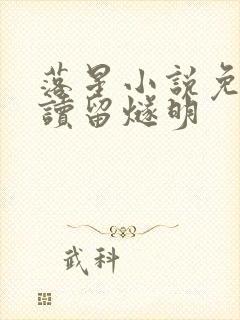 落星小说免
讀留燧明
武科